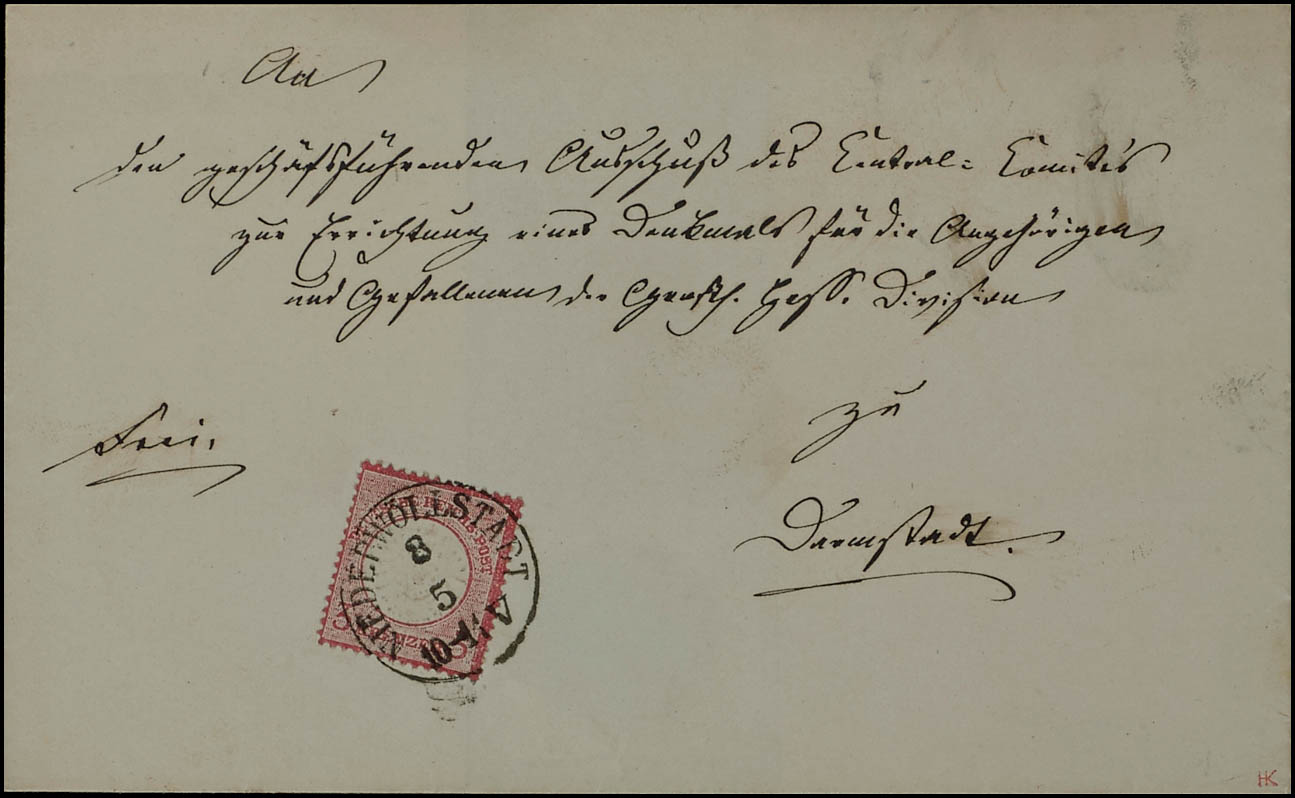 An
den geschäftsführenden Ausschuß des Central-Comités
zur Errichtung eines Denkmals für die Angehörigen
und Gefallenen der Großh. Hess. Division
zu
Darmstadt.
Frei.
NIEDERWÖLLSTADT
8
5
10-
HK